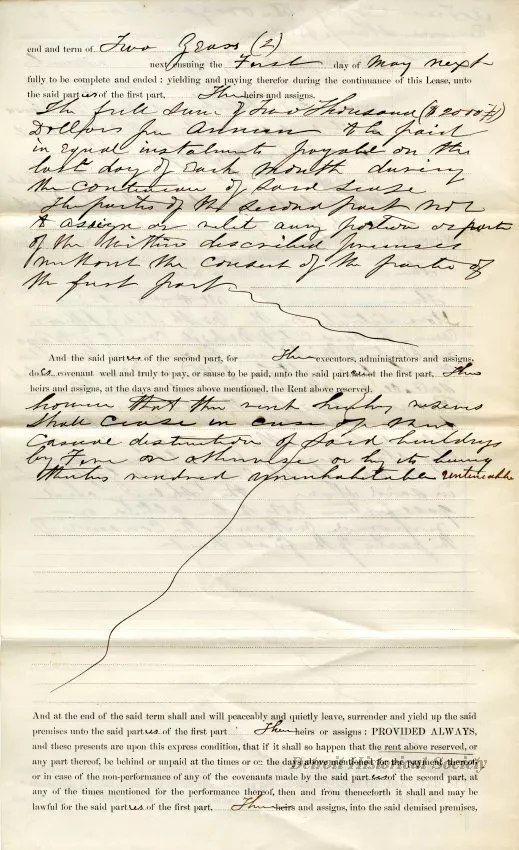 end and term of Two Years (2)
next ensuing the First day of May next
fully to be complete and ended : yielding and paying therefor during the continuance of this Lease, unto
the said parties of the first part, Their heirs and assigns.
The full sum of Two Thousand ($2000
Dollars per Annum to be paid
in equal instalments payable on the
last day of each month during
the continuance of said lease
The parties of the second part not
to assign or relet any portion or parts
of the within described premises
without the consent of the parties of
the first part
And the said parties of the second part, for Their executors, administrators and assigns,
does covenant well and truly to pay, or cause to be paid, unto the said parties of the first part, Their
heirs and assigns, at the days and times above mentioned, the Rent above reserved.
however that the rent hereby reserved
shall cease in case of the
Casual distruction of said buildings
by Fire or otherwise or by its being
thereby rendered uninhabitable untenantable
And at the end of the said term shall and will peaceably and quietly leave, surrender and yield up the said
premises unto the said parties of the first part Their heirs or assigns : PROVIDED ALWAYS,
and these presents are upon this express condition, that if it shall so happen that the rent above reserved, or
any part thereof, be behind or unpaid at the times or on the days above mentioned for the payment thereof,
or in case of the non-performance of any of the covenants made by the said parties of the second part, at
any of the times mentioned for the performance thereof, then and from thenceforth it shall and may be
lawful for the said parties of the first part, Their heirs and assigns, into the said demised premises,
Detroit Historical Society